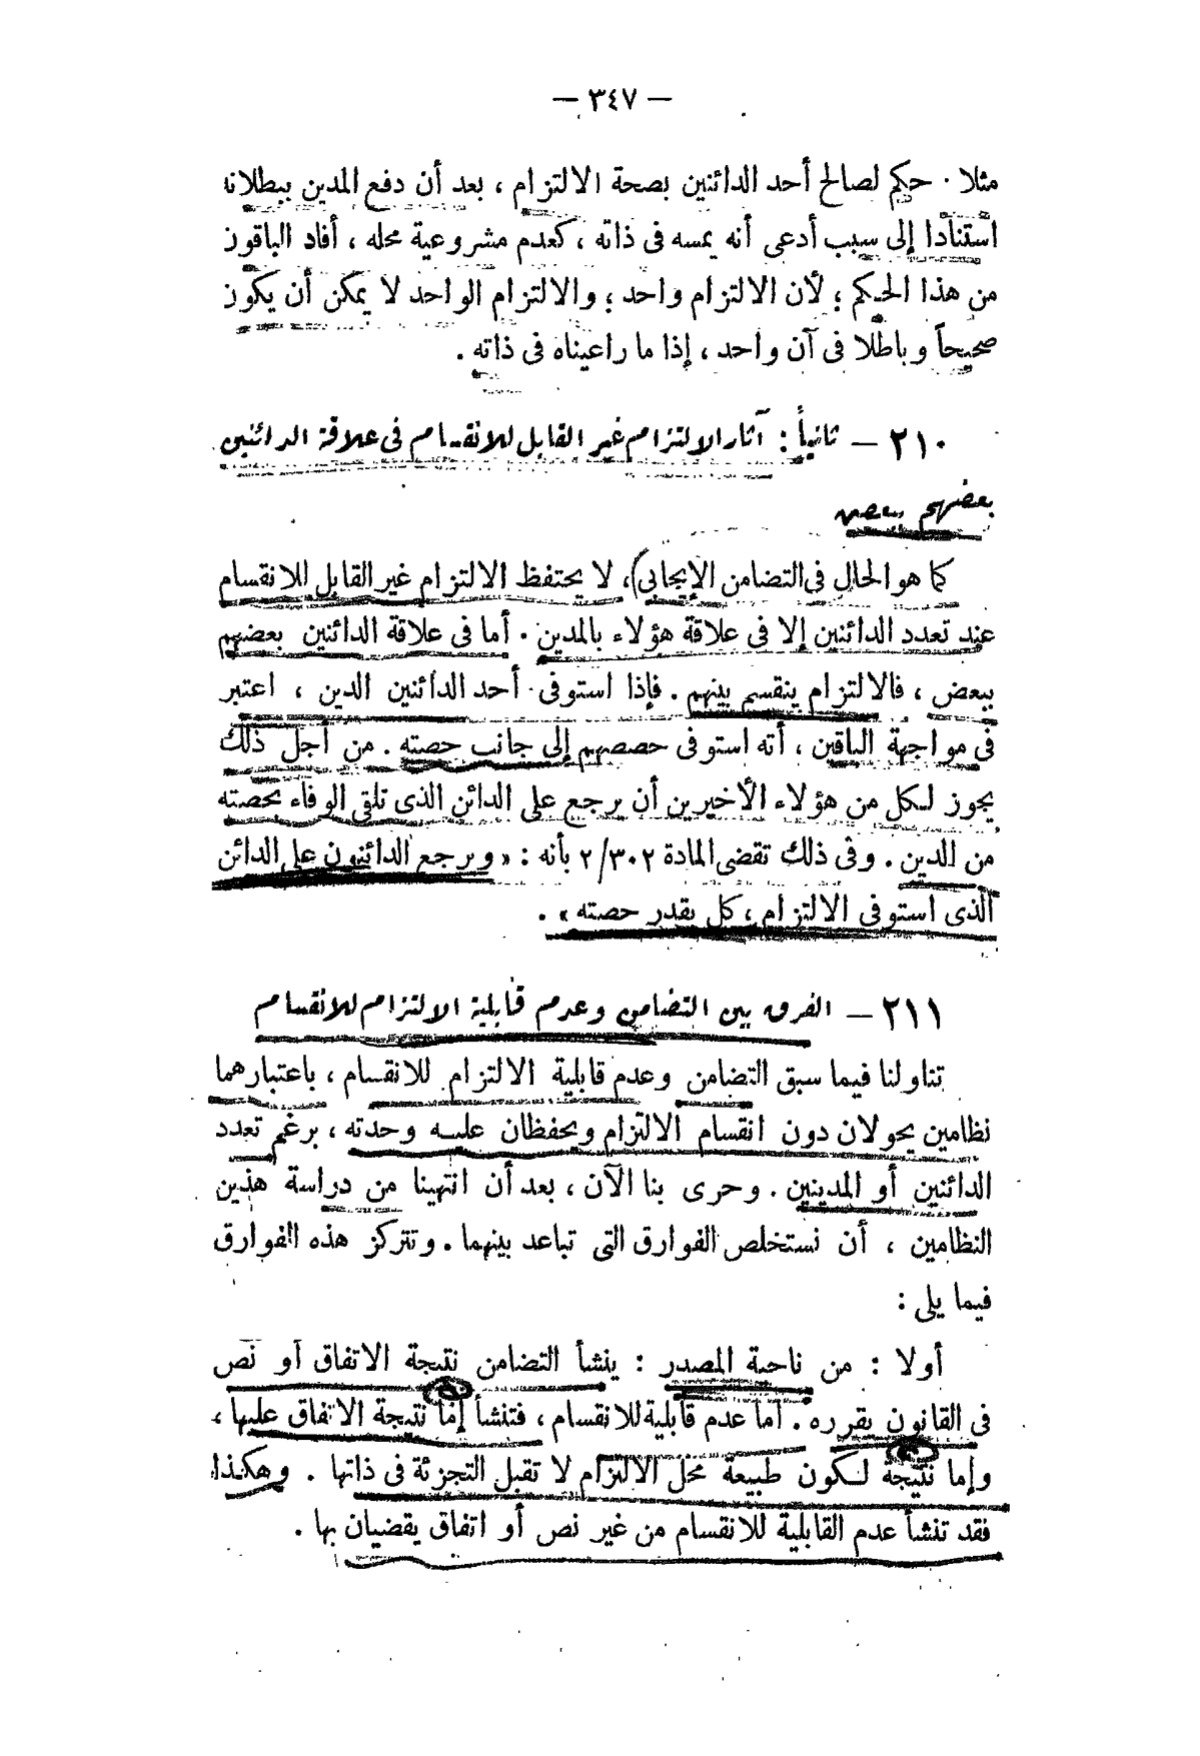 — ٣٤٧ —
مثلا . حكم لصالح أحد الدائنين بصحة الالتزام ، بعد أن دفع المدين ببطلانه
استنادا إلى سبب أدعى أنه يمسه فى ذاته ، كعدم مشروعية محله ، أفاد الباقون
من هذا الحكم ؛ لأن الالتزام واحد ؛ والالتزام الواحد لا يمكن أن يكون
صحيحاً وباطلا فى آن واحد ، إذا ما راعيناه فى ذاته .
٢١٠ — ثانياً : آثار الالتزام غير القابل للانقسام فى علاقة الدائنين
بعضهم ببعض
كما هو الحال فى التضامن الإيجابى ، لا يحتفظ الالتزام غير القابل للانقسام
عند تعدد الدائنين إلا فى علاقة هؤلاء بالمدين . أما فى علاقة الدائنين بعضهم
ببعض ، فالالتزام ينقسم بينهم . فإذا استوفى أحد الدائنين الدين ، اعتبر
فى مواجهة الباقين ، أنه استوفى حصصهم إلى جانب حصته . من أجل ذلك
يجوز لكل من هؤلاء الأخيرين أن يرجع على الدائن الذى تلقى الوفاء بحصته
من الدين . وفى ذلك تقضى المادة ٢/٣٠٢ بأنه : « ويرجع الدائنون على الدائن
الذى استوفى الالتزام ، كل بقدر حصته » .
٢١١ — الفرق بين التضامن وعدم قابلية الالتزام للانقسام
تناولنا فيما سبق التضامن وعدم قابلية الالتزام للانقسام ، باعتبارهما
نظامين يحولان دون انقسام الالتزام ويحفظان عليه وحدته ، برغم تعدد
الدائنين أو المدينين . وحرى بنا الآن ، بعد أن انتهينا من دراسة هذين
النظامين ، أن نستخلص الفوارق التى تباعد بينهما . وتتركز هذه الفوارق
فيما يلى :
أولا : من ناحية المصدر : ينشأ التضامن نتيجة الاتفاق أو نص
فى القانون يقرره . أما عدم قابلية للانقسام ، فتنشأ إما نتيجة الاتفاق عليها ،
وإما نتيجة لكون طبيعة محل الالتزام لا تقبل التجزئة فى ذاتها . وهكذا
فقد تنشأ عدم القابلية للانقسام من غير نص أو اتفاق يقضيان بها .